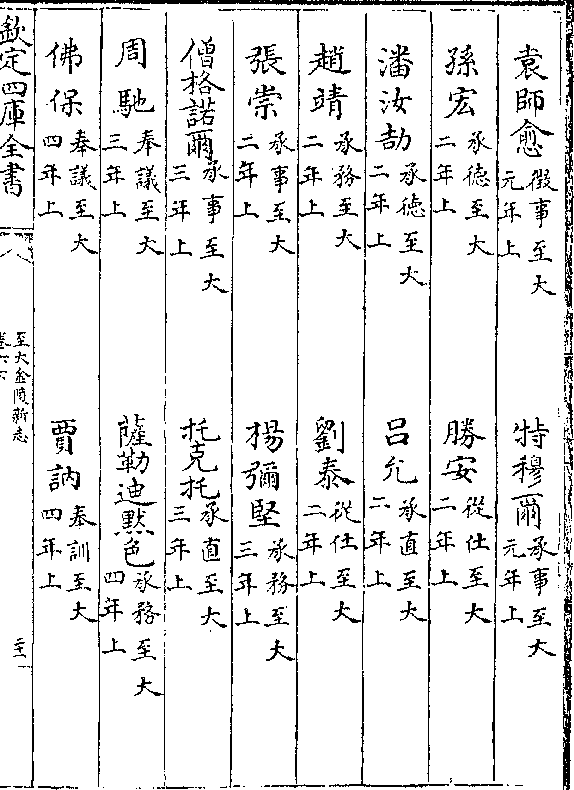 袁師愈徵事至大元年上　特穆爾承事至大元年上
孫宏承德至大二年上　勝安從仕至大二年上
潘汝劼承德至大二年上　呂允承直至大二年上
趙靖承務至大二年上　劉泰從仕至大二年上
張崇承事至大二年上　楊彌堅承務至大三年上
僧格諾爾承事至大三年上　托克托承直至大三年上
周馳奉議至大三年上　薩勒迪黙色承務至大四年上
佛保奉議至大四年上　賈訥奉訓至大四年上
欽定四庫全書　至大金陵新志